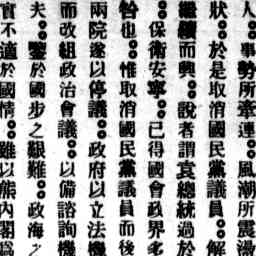 人。事勢所牽連。風潮所震湯
狀。於是取消國民黨議員。解
繼續而興。說者謂袁總統過於
。保衛安寧。已得國會政界多
恰也。惟取消國民黨議員而後
兩院遂以停議。政府以立法機
而改組政治會議。以備諮詢機
夫。鑒於國步之艱難。政海之
實不適於國情。雖以熊內閣爲